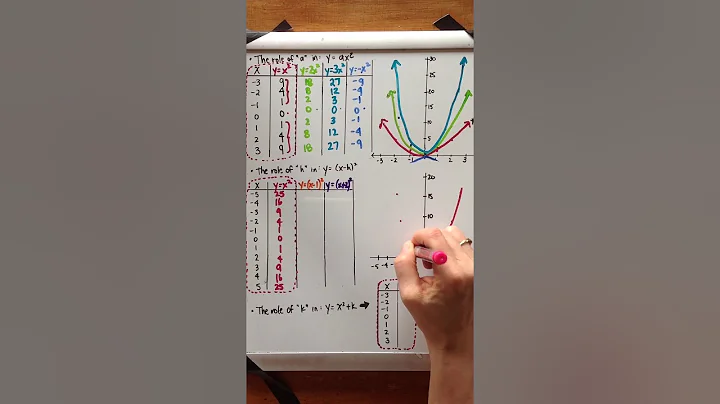 • The role of "a" in: y = ax²
x y=x² y=2x² y=3x² y=-x²
-3 9 18 27 -9
-2 4 8 12 -4
-1 1 2 3 -1
0 0 0 0 0
1 1 2 3 -1
2 4 8 12 -4
3 9 18 27 -9
30
25
20
15
10
5
-3 -2 -1 1 2 3
• The role of "h" in: y = (x-h)²
x y=x² y=(x-1)² y=(x+2)²
-5 25
-4 16
-3 9
-2 4
-1 1
0 0
1 1
2 4
3 9
4 16
5 25
20
15
10
-5 -4
• The role of "k" in: y = x² + k
x
-3
-2
-1
0
1
2
3